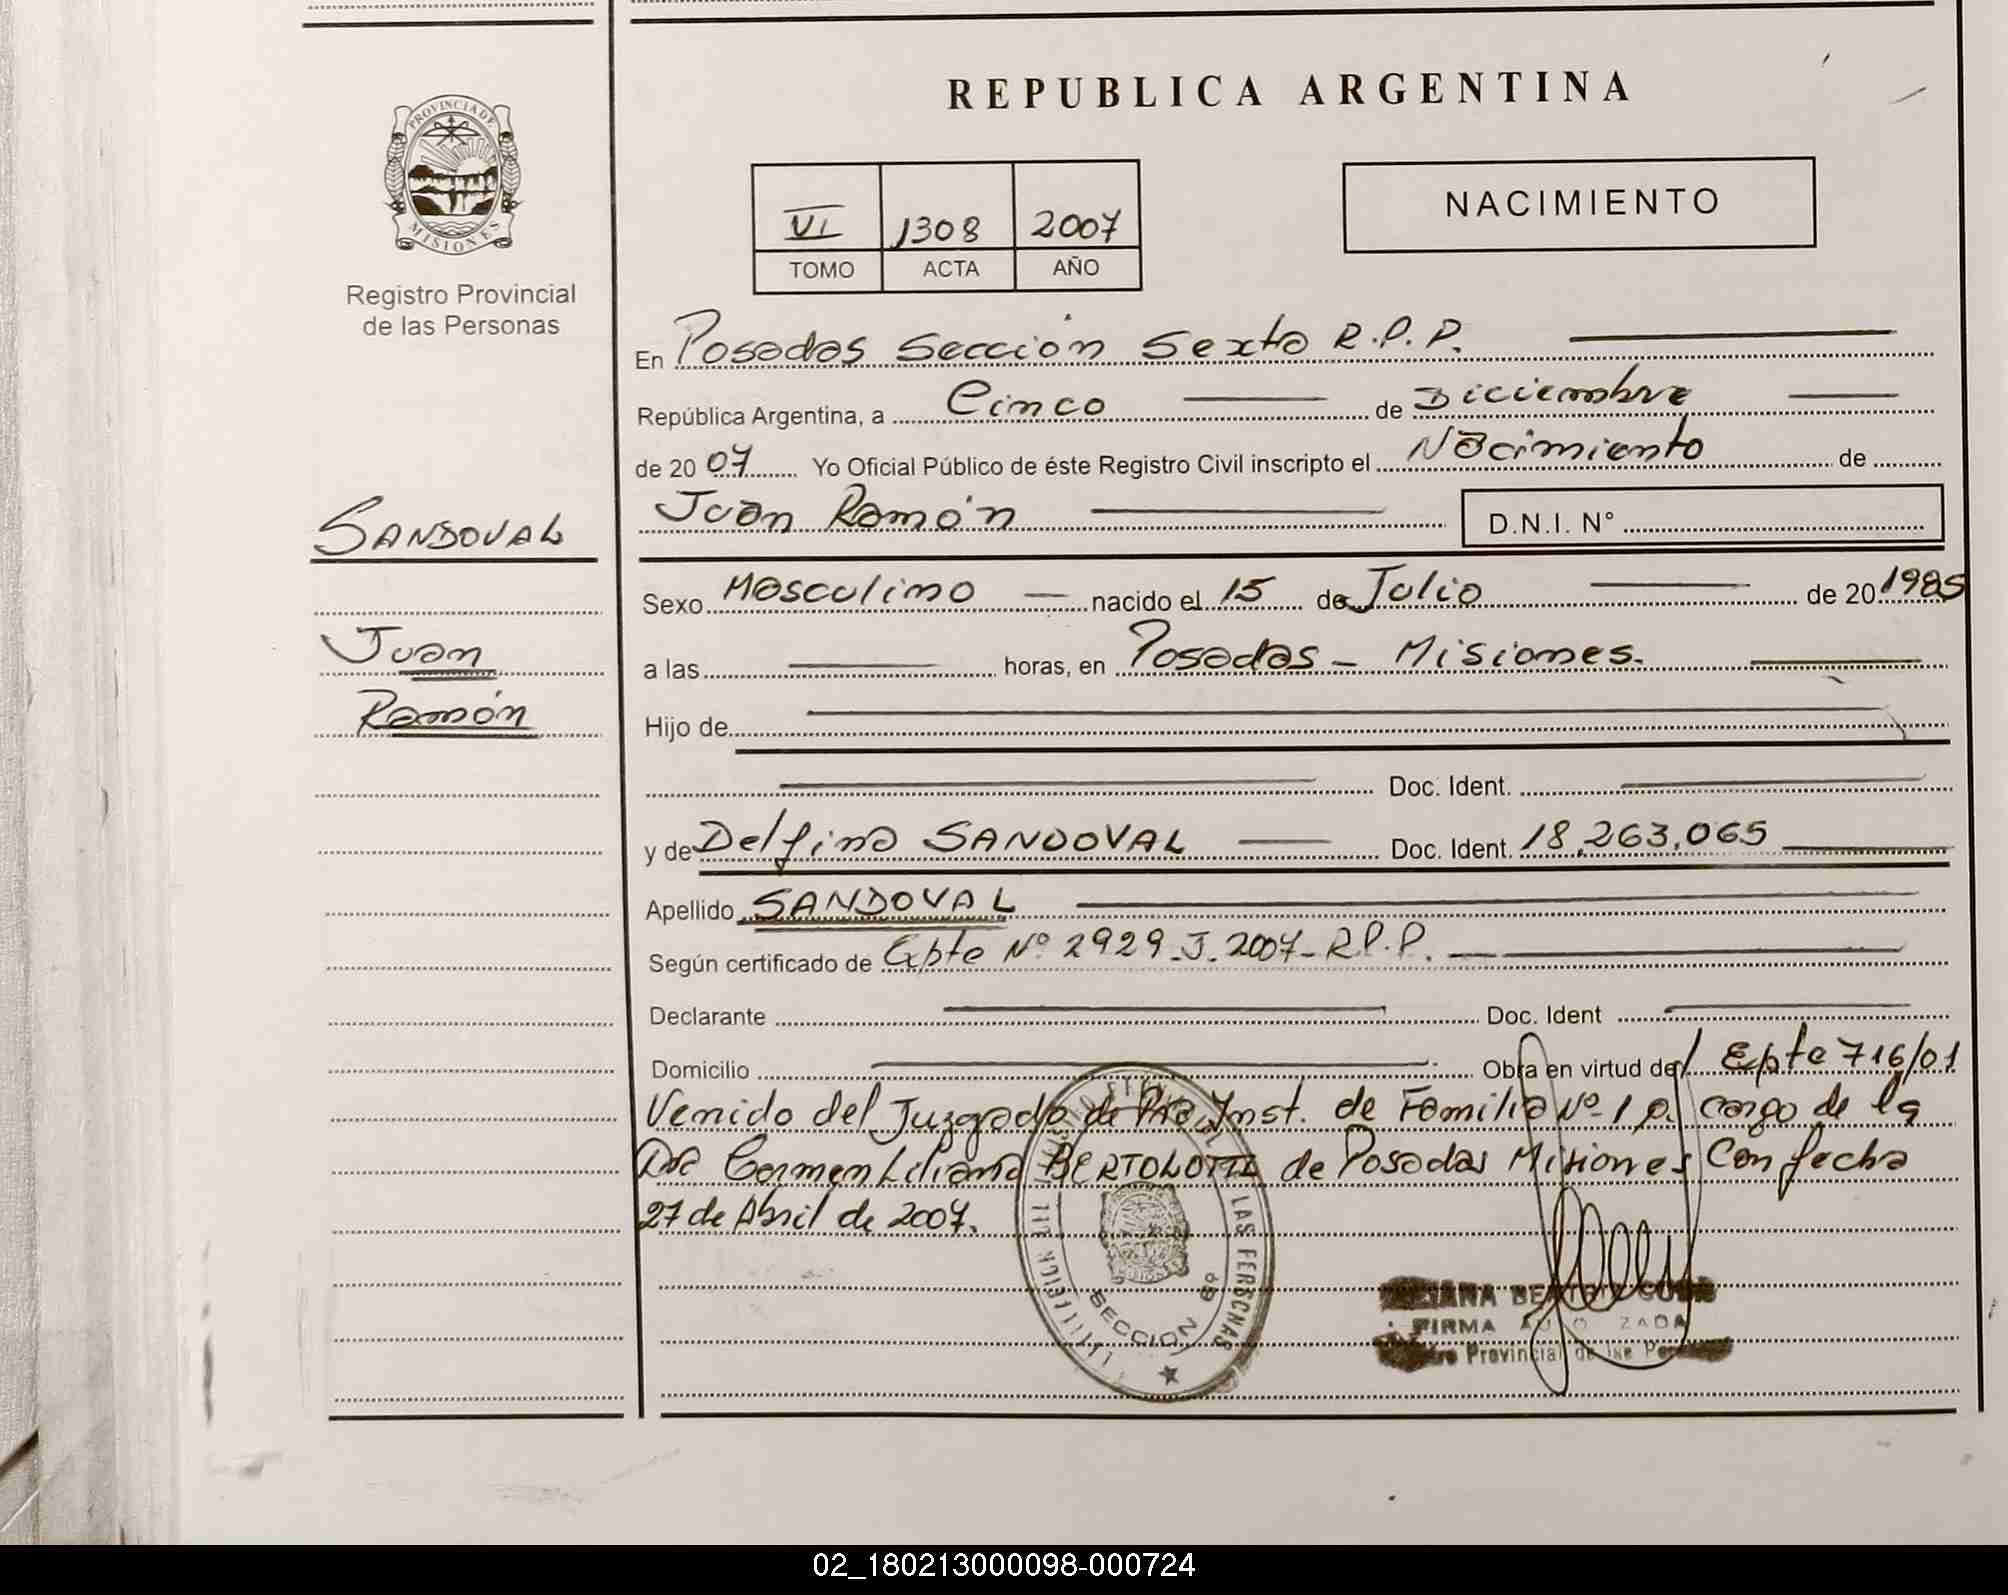 PROVINCIA DE
MISIONES
Registro Provincial
de las Personas
SANDOVAL
Juan
Ramón
REPUBLICA ARGENTINA
VI 1308 2007
TOMO ACTA AÑO
NACIMIENTO
En Posadas Sección Sexta R.P.P.
República Argentina, a Cinco de Diciembre
de 2007 Yo Oficial Público de éste Registro Civil inscripto el Nacimiento de
Juan Ramón D.N.I. N°
Sexo Masculino nacido el 15 de Julio de 20 1985
a las horas, en Posadas - Misiones.
Hijo de
Doc. Ident.
y de Delfina SANDOVAL Doc. Ident. 18.263.065
Apellido SANDOVAL
Según certificado de Epte Nº 2929-J-2007-R.P.P.
Declarante Doc. Ident
Domicilio Obra en virtud del Epte 716/01
Venido del Juzgado de Pra Inst. de Familia Nº 1 a cargo de la
Dra Carmen Liliana BERTOLOTTI de Posadas Misiones Con fecha
27 de Abril de 2007.
LAS PERSONAS
SECCION 6ª
FIRMA
Provincial de las
02_180213000098-000724